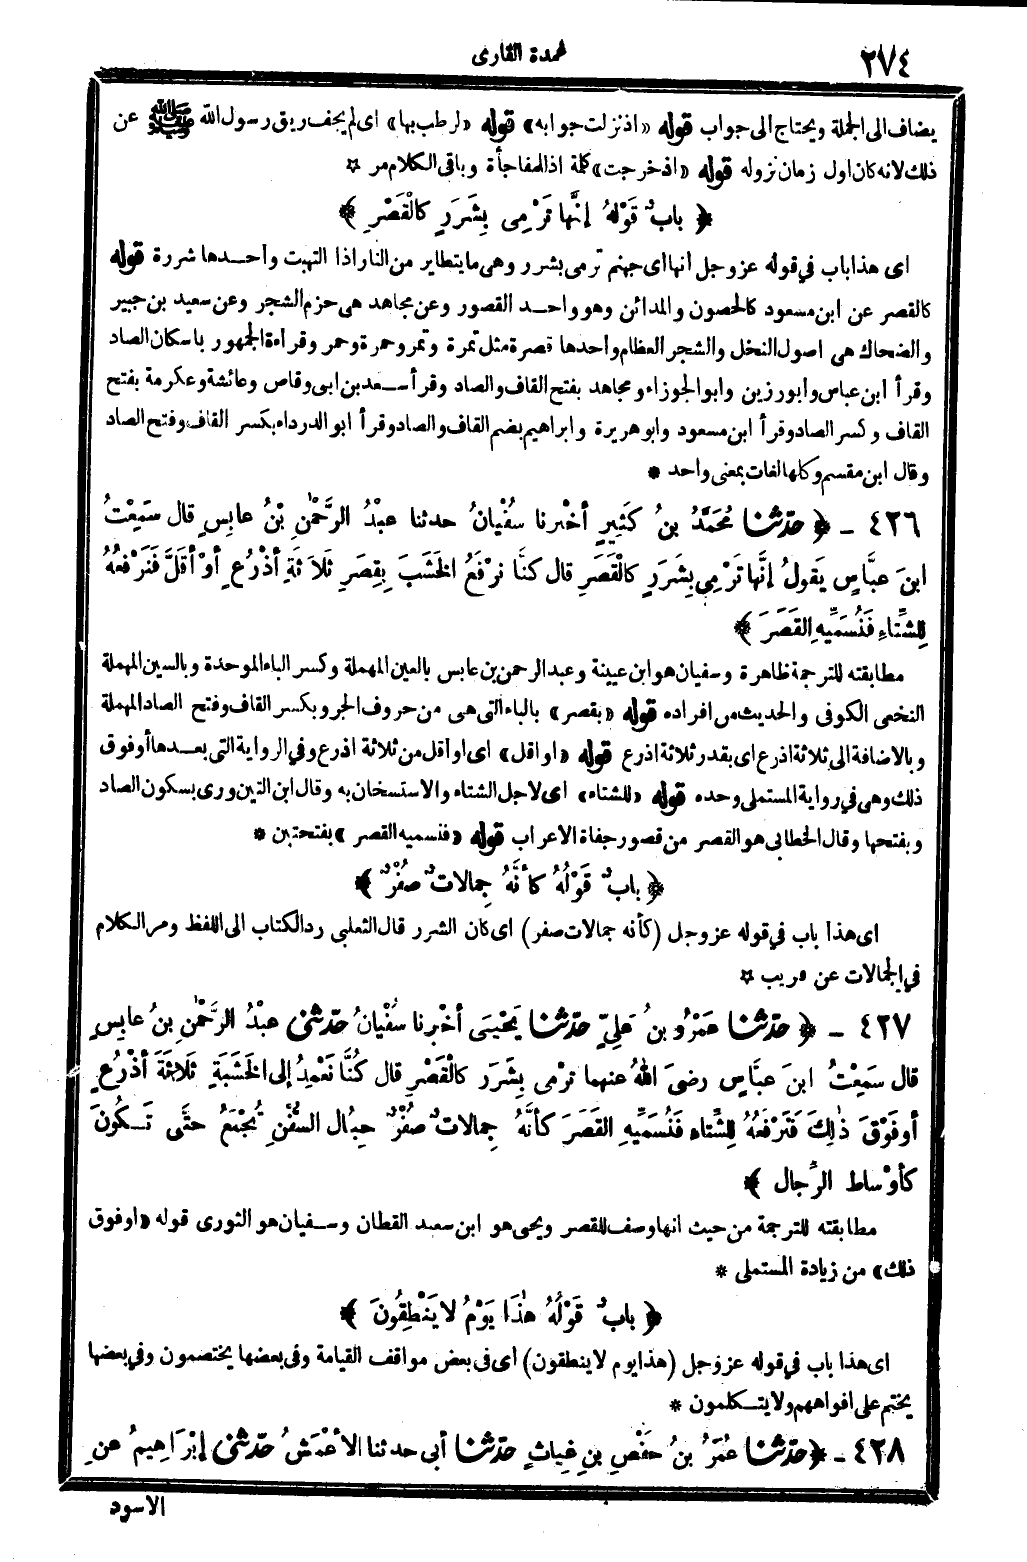 ٢٧٤
عمدة القارى
يضاف الى الجملة ويحتاج الى جواب قوله «اذ نزلت جوابه» قوله «لرطب بها» اى لم يجف ريق رسول الله ﷺ عن
ذلك لانه كان اول زمان نزوله قوله «اذ خرجت» كلمة اذ المفاجأة وباقى الكلام مر *
﴿ بابٌ قَوْلُهُ إنَّها تَرْمِى بِشَرَرٍ كالْقَصْرِ ﴾
اى هذا باب فى قوله عز وجل انها اى جهنم ترمى بشرر وهى ما يتطاير من النار اذا التهبت واحدها شررة قوله
كالقصر عن ابن مسعود كالحصون والمدائن وهو واحد القصور وعن مجاهد هى حزم الشجر وعن سعيد بن جبير
والضحاك هى اصول النخل والشجر العظام واحدها قصرة مثل تمرة وتمر وحمرة وحمر وقراءة الجمهور باسكان الصاد
وقرأ ابن عباس وابو رزين وابو الجوزاء ومجاهد بفتح القاف والصاد وقرأ سعد بن ابى وقاص وعائشة وعكرمة بفتح
القاف وكسر الصاد وقرأ ابن مسعود وابو هريرة وابراهيم بضم القاف والصاد وقرأ ابو الدرداء بكسر القاف وفتح الصاد
وقال ابن مقسم وكلها لغات بمعنى واحد *
٤٢٦ - ﴿ حدّثنا مُحَمَّدُ بنُ كَثِيرٍ أخْبرنا سُفْيانُ حدثنا عبْدُ الرَّحْمٰنِ بْنُ عابِسٍ قال سَمِعْتُ
ابنَ عبَّاسٍ يَقولُ إنَّها تَرْمِى بِشَرَرٍ كالْقَصَرِ قال كنَّا نرْفَعُ الخَشَبَ بِقِصَرِ ثلاثَةِ أذْرُعٍ أوْ أقَلَّ فَنَرْفعُهُ
لِلشِّتاءِ فَنُسَمِّيهِ القَصَرَ ﴾
مطابقته للترجمة ظاهرة وسفيان هو ابن عيينة وعبد الرحمن بن عابس بالعين المهملة وكسر الباء الموحدة وبالسين المهملة
النخعى الكوفى والحديث من افراده قوله «بقصر» بالباء التى هى من حروف الجر وبكسر القاف وفتح الصاد المهملة
وبالاضافة الى ثلاثة اذرع اى بقدر ثلاثة اذرع قوله «او اقل» اى او اقل من ثلاثة اذرع وفى الرواية التى بعدها أو فوق
ذلك وهى فى رواية المستملى وحده قوله «للشتاء» اى لاجل الشتاء والاستسخان به وقال ابن التين وروى بسكون الصاد
وبفتحها وقال الخطابى هو القصر من قصور جفاة الاعراب قوله «فنسميه القصر» بفتحتين *
﴿ بابٌ قَوْلُهُ كأنَّهُ جِمالاتٌ صُفْرٌ ﴾
اى هذا باب فى قوله عز وجل (كأنه جمالات صفر) اى كان الشرر قال الثعلبى رد الكتاب الى اللفظ ومر الكلام
فى الجمالات عن قريب *
٤٢٧ - ﴿ حدّثنا عَمْرُو بنُ عَلِىٍّ حدّثنا يَحْيَى أخْبرنا سُفْيانُ حدّثنى عبْدُ الرَّحْمٰنِ بنُ عابِسٍ
قال سَمِعْتُ ابنَ عبَّاسٍ رضىَ اللهُ عنهما تَرْمِى بِشَرَرٍ كالْقَصْرِ قال كُنَّا نَعْمِدُ إلى الخَشَبَةِ ثلاثَةَ أذْرُعٍ
أو فَوْقَ ذٰلِكَ فَنَرْفَعُهُ لِلشِّتاءِ فَنُسَمِّيهِ القَصَرَ كأنَّهُ جِمالاتٌ صُفْرٌ حِبالُ السُّفُنِ تُجْمَعُ حتَّى تَكُونَ
كأوْساطِ الرِّجالِ ﴾
مطابقته للترجمة من حيث انها وصف للقصر ويحيى هو ابن سعيد القطان وسفيان هو الثورى قوله «او فوق
ذلك» من زيادة المستملى *
﴿ بابٌ قَوْلُهُ هٰذَا يَوْمُ لا يَنْطِقُونَ ﴾
اى هذا باب فى قوله عز وجل (هذا يوم لا ينطقون) اى فى بعض مواقف القيامة وفى بعضها يختصمون وفى بعضها
يختم على افواههم ولا يتكلمون *
٤٢٨ - ﴿ حدّثنا عُمَرُ بنُ حَفْصِ بنِ غِياثٍ حدّثنا أبى حدثنا الأعْمَشُ حدّثنى إبْرَاهِيمُ عنِ
الاسود